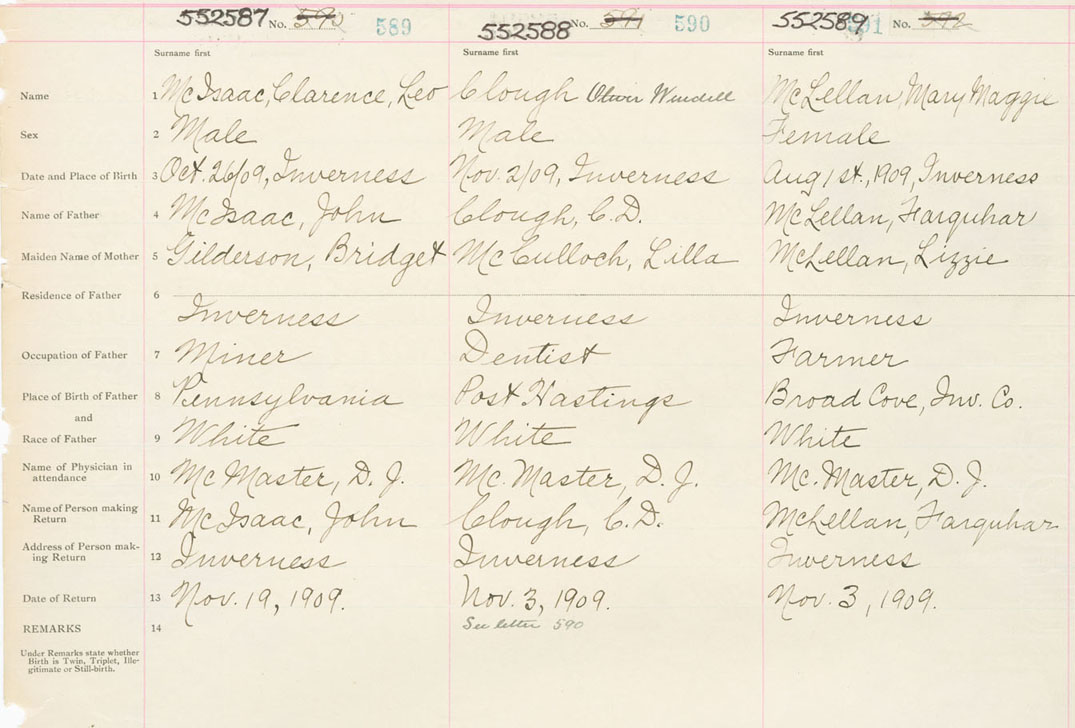 552587 No. 589 552588 No. 590 552589 591 No.
Surname first Surname first Surname first
Name 1 McIsaac, Clarence, Leo Clough Oliver Wendell McLellan, Mary Maggie
Sex 2 Male Male Female
Date and Place of Birth 3 Oct. 26/09, Inverness Nov. 2/09, Inverness Aug 1st., 1909, Inverness
Name of Father 4 McIsaac, John Clough, C. D. McLellan, Farquhar
Maiden Name of Mother 5 Gilderson, Bridget McCulloch, Lilla McLellan, Lizzie
Residence of Father 6
Inverness Inverness Inverness
Occupation of Father 7 Miner Dentist Farmer
Place of Birth of Father 8 Pennsylvania Post Hastings Broad Cove, Inv. Co.
and
Race of Father 9 White White White
Name of Physician in
attendance 10 Mc Master, D. J. Mc. Master, D. J. Mc. Master, D. J.
Name of Person making
Return 11 McIsaac, John Clough, C. D. McLellan, Farquhar
Address of Person mak-
ing Return 12 Inverness Inverness Inverness
Date of Return 13 Nov. 19, 1909. Nov. 3, 1909. Nov. 3, 1909.
REMARKS 14 See letter 590
Under Remarks state whether
Birth is Twin, Triplet, Ille-
gitimate or Still-birth.